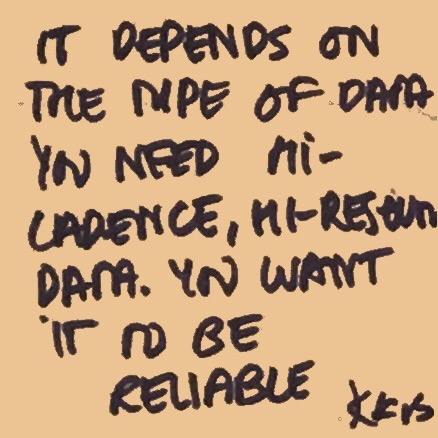 IT DEPENDS ON
THE TYPE OF DATA
YOU NEED HI-
CADENCE, HI-RESOLUTION
DATA. YOU WANT
IT TO BE
RELIABLE